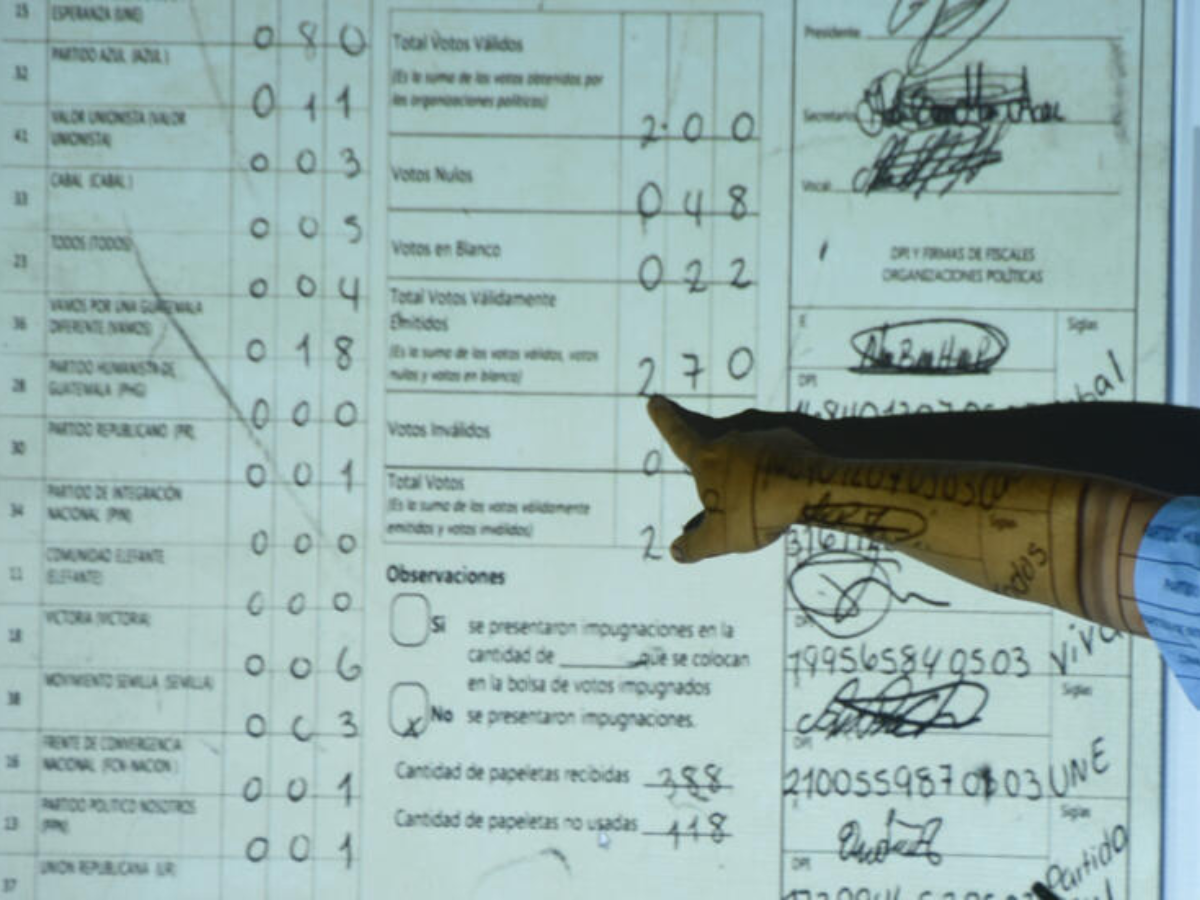 15 ESPERANZA (UNE) 0 8 0
32 PARTIDO AZUL (AZUL) 0 1 1
41 VALOR UNIONISTA (VALOR
UNIONISTA) 0 0 3
33 CABAL (CABAL) 0 0 5
23 TODOS (TODOS) 0 0 4
36 VAMOS POR UNA GUATEMALA
DIFERENTE (VAMOS) 0 1 8
28 PARTIDO HUMANISTA DE
GUATEMALA (PHG) 0 0 0
30 PARTIDO REPUBLICANO (PR) 0 0 1
34 PARTIDO DE INTEGRACIÓN
NACIONAL (PIN) 0 0 0
11 COMUNIDAD ELEFANTE
(ELEFANTE) 0 0 0
18 VICTORIA (VICTORIA) 0 0 6
38 MOVIMIENTO SEMILLA (SEMILLA) 0 0 3
16 FRENTE DE CONVERGENCIA
NACIONAL (FCN-NACION) 0 0 1
13 PARTIDO POLITICO NOSOTROS
(PPN) 0 0 1
37 UNION REPUBLICANA (UR)
Total Votos Válidos
(Es la suma de los votos obtenidos por
las organizaciones políticas)
2 0 0
Votos Nulos 0 4 8
Votos en Blanco 0 2 2
Total Votos Válidamente
Emitidos
(Es la suma de los votos válidos, votos
nulos y votos en blanco)
2 7 0
Votos Inválidos 0
Total Votos
(Es la suma de los votos válidamente
emitidos y votos inválidos)
2
Observaciones
Si se presentaron impugnaciones en la
cantidad de ______ que se colocan
en la bolsa de votos impugnados
x No se presentaron impugnaciones.
Cantidad de papeletas recibidas 388
Cantidad de papeletas no usadas 118
Presidente
Secretario
Vocal
DPI Y FIRMAS DE FISCALES
ORGANIZACIONES POLÍTICAS
F. Siglas
DPI
Siglas
Todos
DPI
199565840503 Viva
Siglas
DPI
2100559870103 UNE
Siglas
DPI
Partido